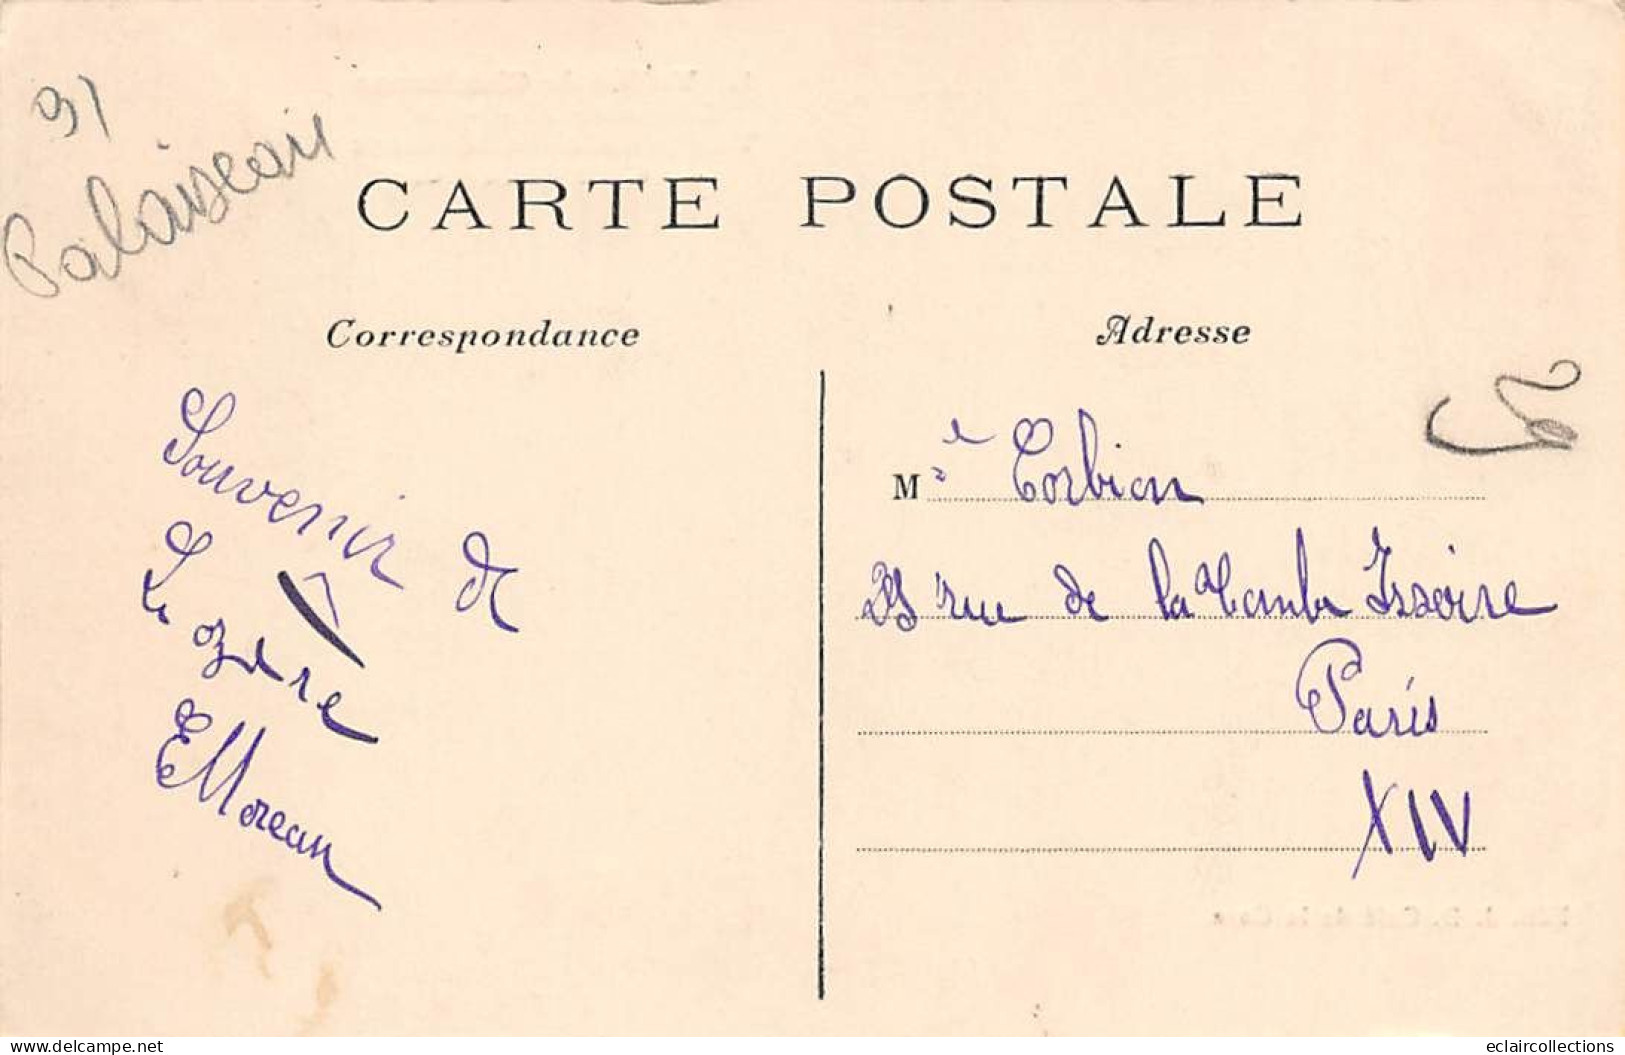 91
Palaiseau
CARTE POSTALE
Correspondance
Adresse
Souvenir de
Lozère
E Moreau
Mlle Corbion
25 rue de la Tombe Issoire
Paris
XIV
eclaircollections